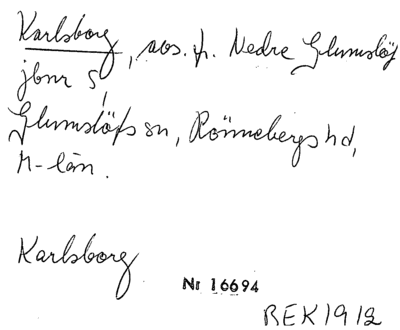 Karlsborg, avs. fr. Nedre Glumslöf
jbnr 5,
Glumslöfs sn, Rönnebergs hd,
M-län.
Karlsborg
Nr 16694
BEK 1912